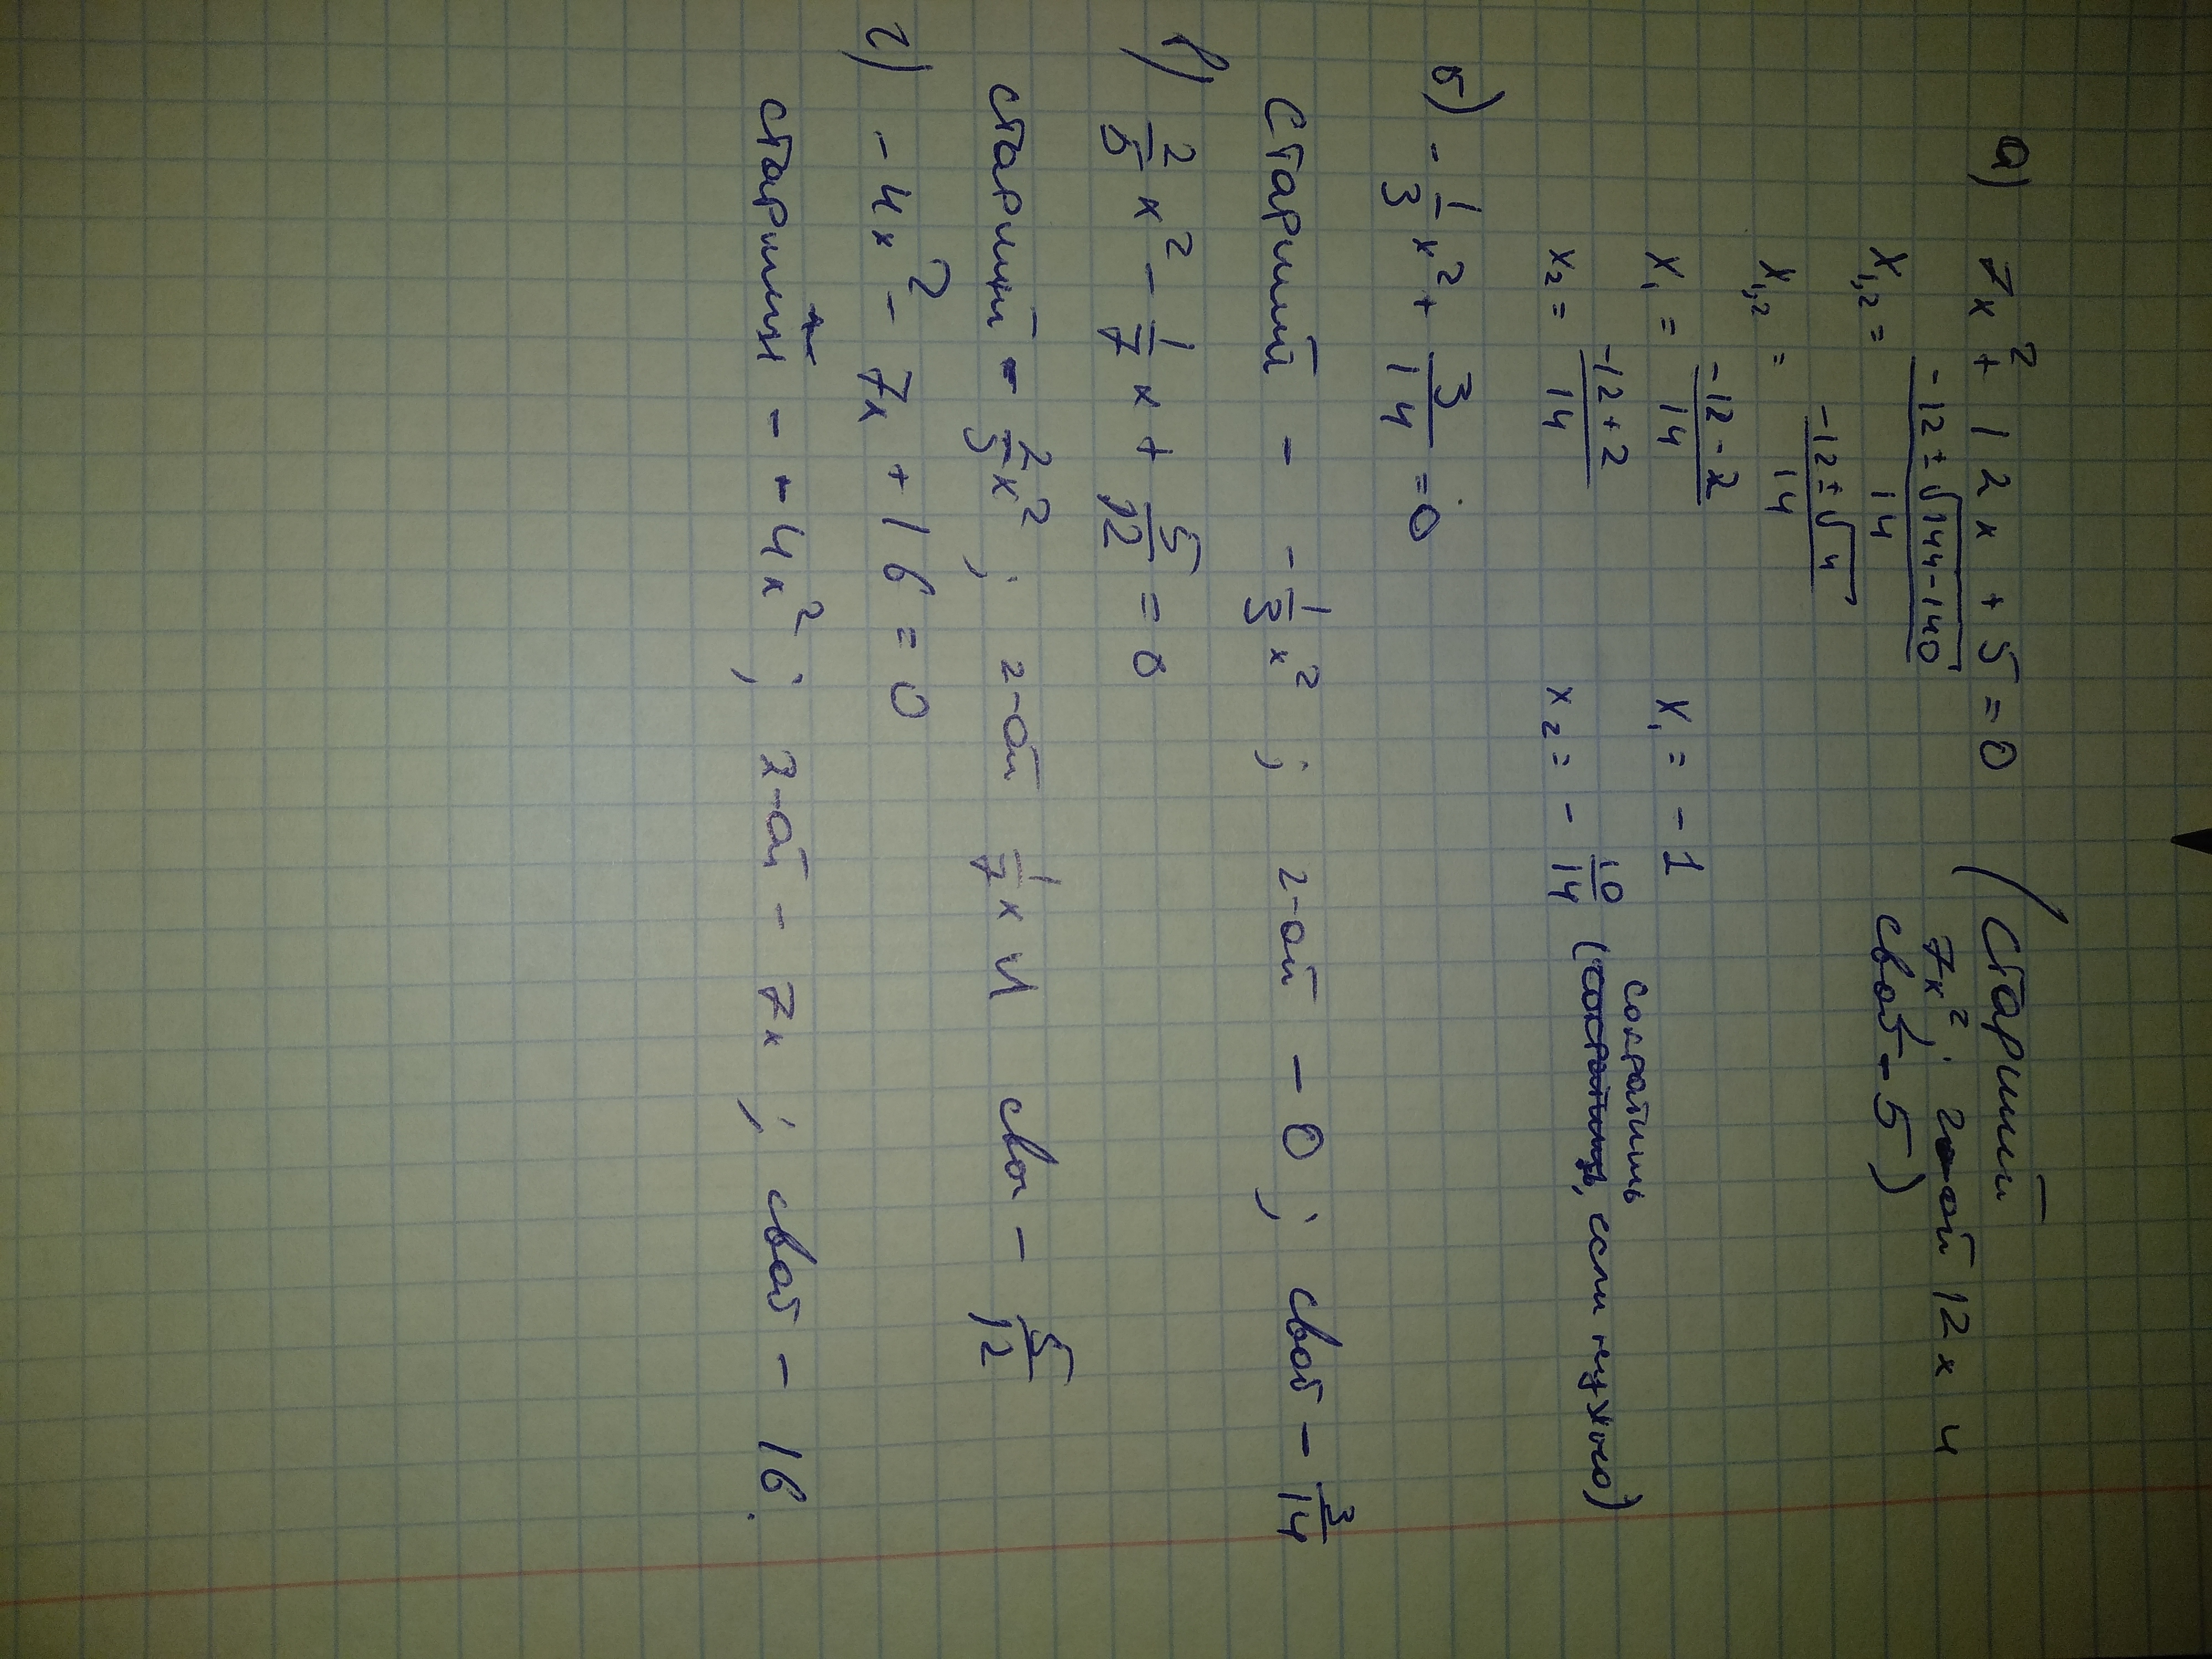 а) 7x² + 12x + 5 = 0 (старший
7x²; 2-ой 12x и
своб - 5)
x₁,₂ = (-12 ± √(144-140))/14
x₁,₂ = (-12 ± √4)/14
x₁ = (-12 - 2)/14 x₁ = -1
x₂ = (-12 + 2)/14 x₂ = -10/14 (сократить, если нужно)
б) -1/3 x² + 3/14 = 0
Старший - -1/3 x²; 2-ой - 0; своб - 3/14
в) 2/5 x² - 1/7 x + 5/12 = 0
старший - 2/5 x²; 2-ой 1/7 x и сво - 5/12
г) -4x² - 7x + 16 = 0
старший - -4x²; 2-ой - 7x; своб - 16.